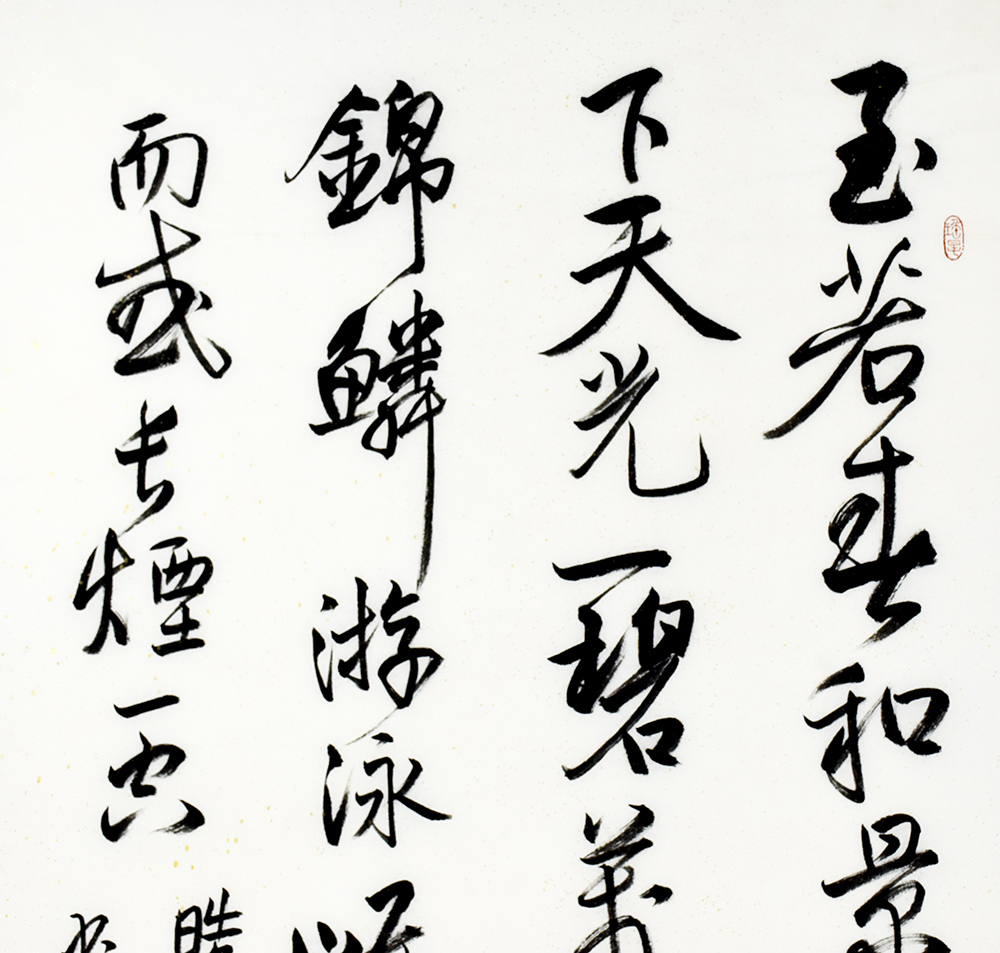 至若春和景
下天光一碧萬
錦鱗游泳
而或長煙一空